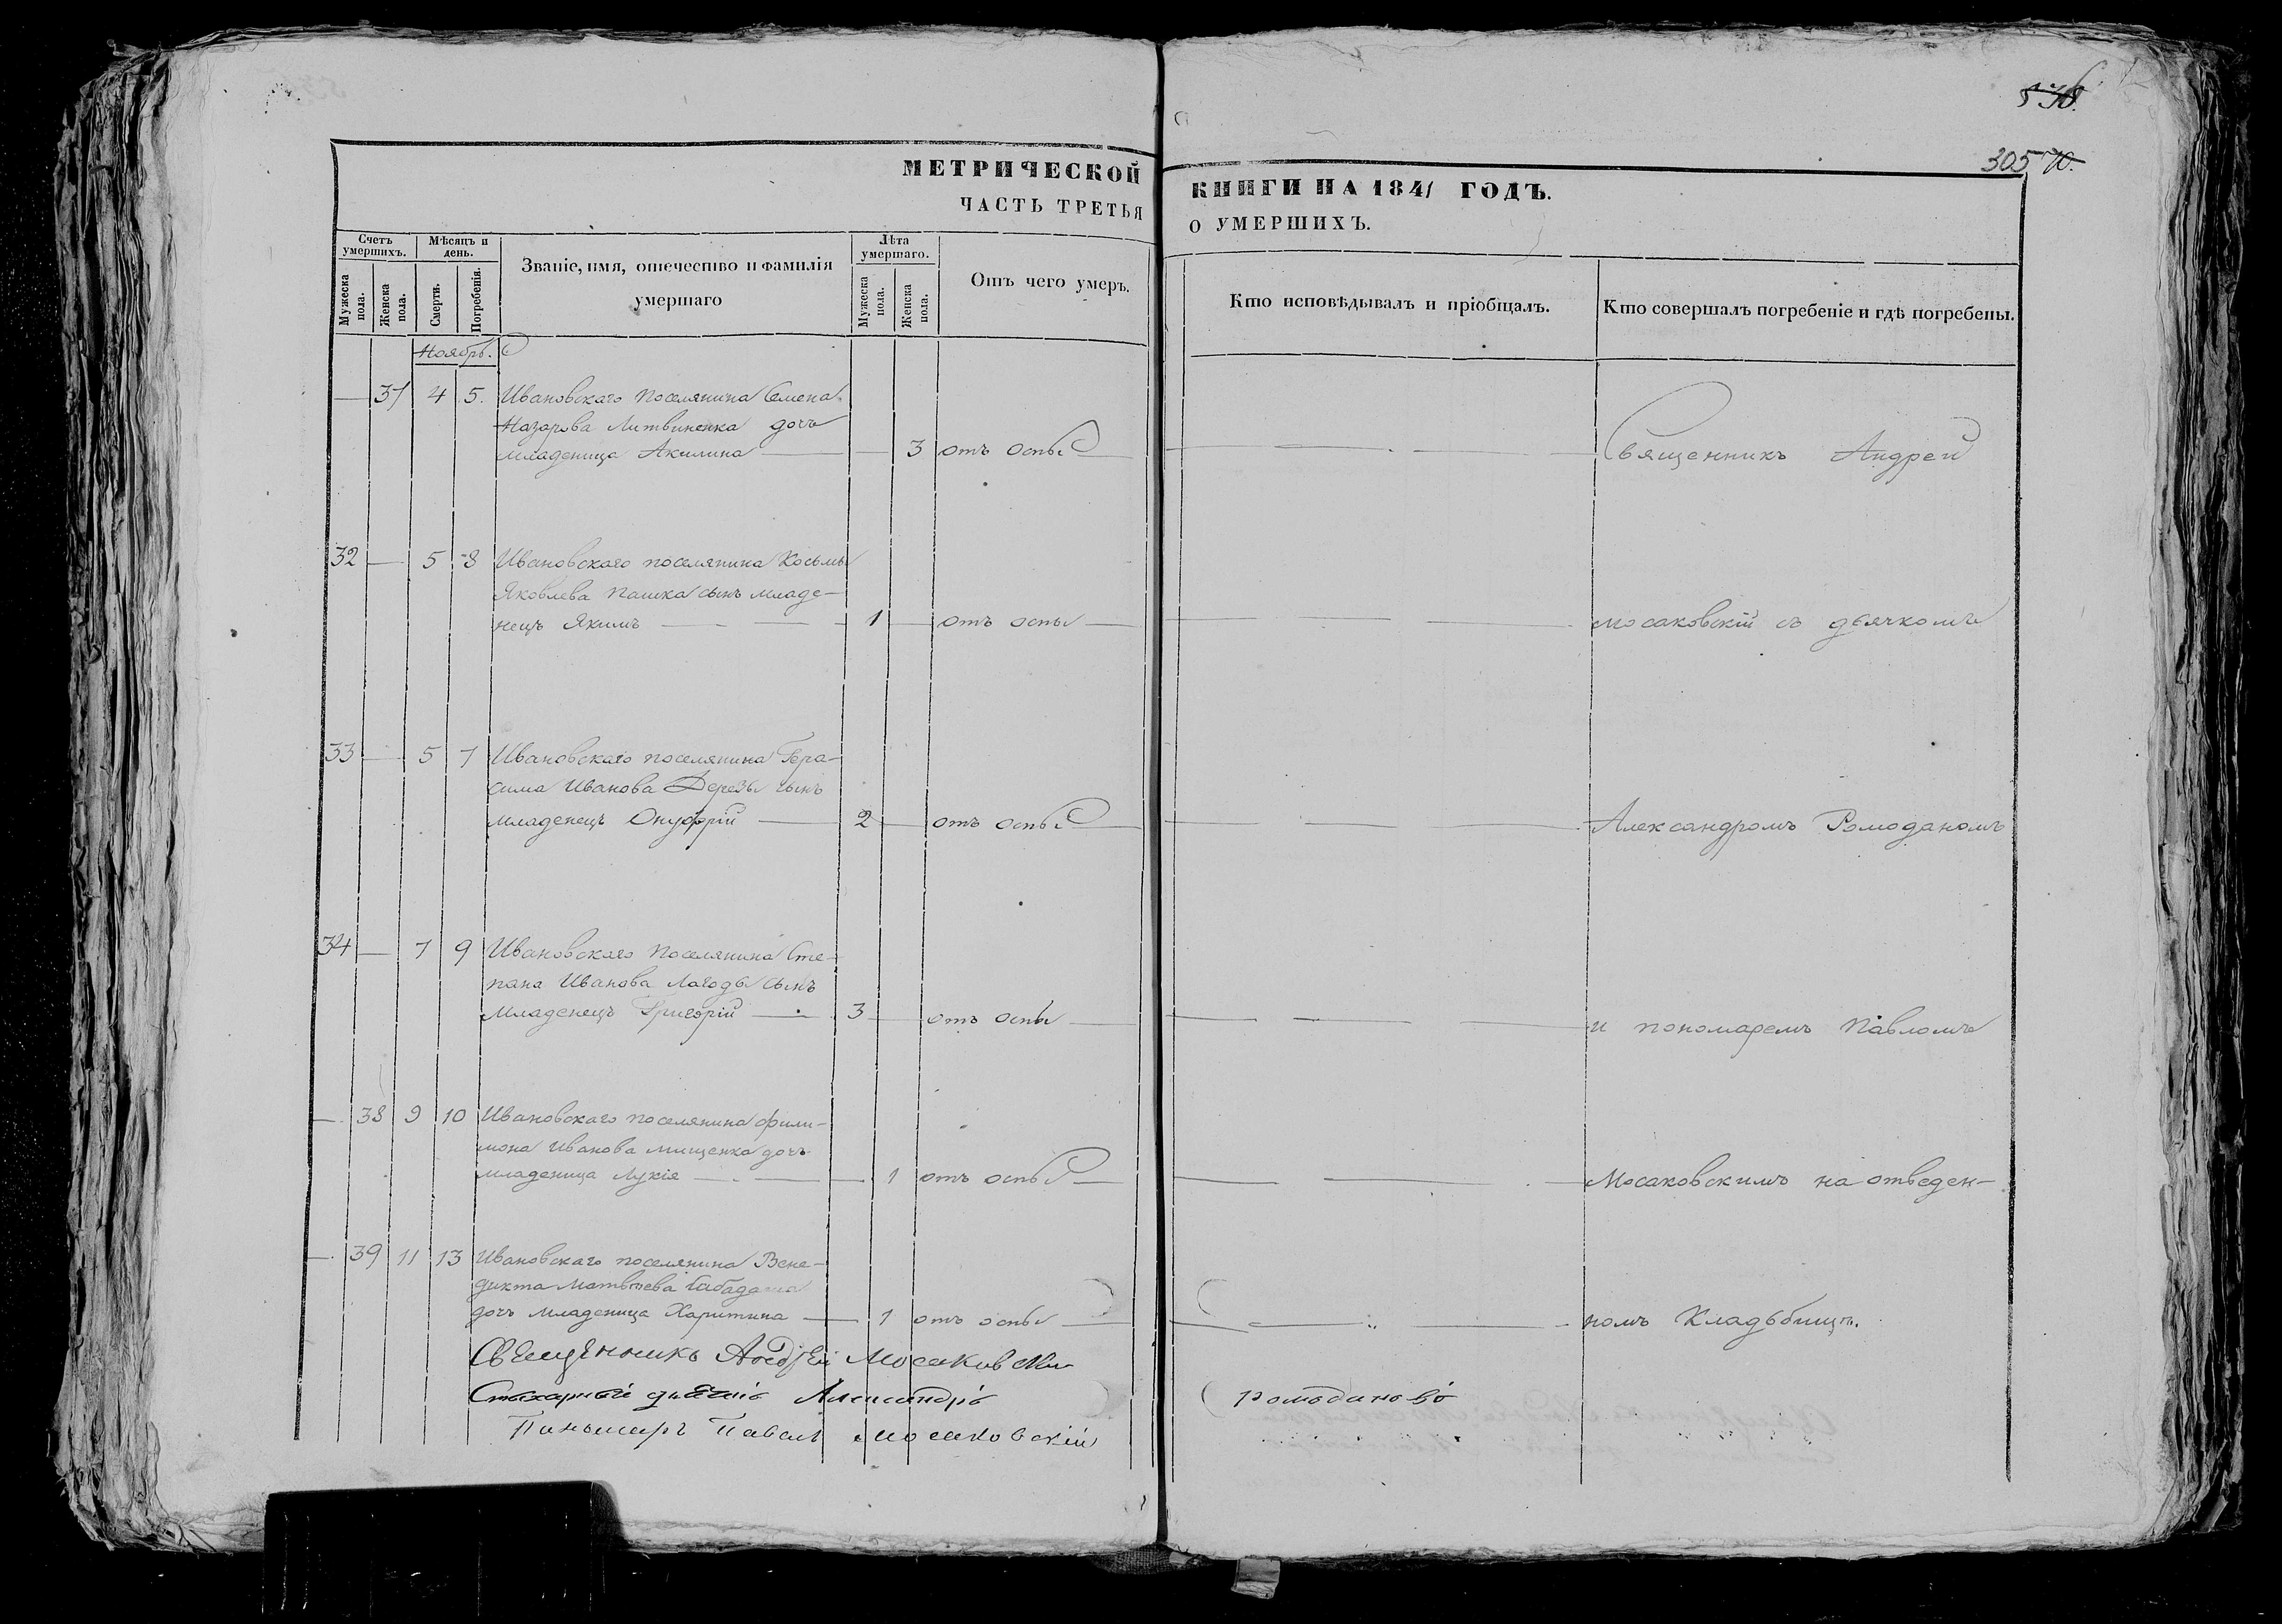 578.
305 70.
МЕТРИЧЕСКОЙ КНИГИ НА 1841 ГОДЪ.
ЧАСТЬ ТРЕТЬЯ О УМЕРШИХЪ.
Счетъ умершихъ.
Мужеска пола.
Женска пола.
Мѣсяцъ и день.
Смерти.
Погребенія.
Званіе, имя, отечество и фамилія
умершаго
Лѣта умершаго.
Мужеска пола.
Женска пола.
Отъ чего умеръ.
Кто исповѣдывалъ и пріобщалъ.
Кто совершалъ погребеніе и гдѣ погребены.
Ноябрь.
37 4 5. Ивановскаго поселянина Семена
Назарова Литвиненка дочь
младеница Акилина 3 отъ оспы Священникъ Андрей
32 5 8 Ивановскаго поселянина Косьмы
Яковлева Пашка сынъ младе-
нецъ Якимъ 1 отъ оспы Мосаковскій съ дьячкомъ
33 5 7 Ивановскаго поселянина Гера-
сима Иванова Дерезы сынъ
младенецъ Онуфрій 2 отъ оспы Александромъ Ромоданомъ
34 7 9 Ивановскаго поселянина Сте-
пана Иванова Лагоды сынъ
младенецъ Григорій 3 отъ оспы и пономаремъ Павломъ
38 9 10 Ивановскаго поселянина Фили-
мона Иванова Мищенка дочь
младеница Лукія 1 отъ оспы Мосаковскимъ на отведен-
39 11 13 Ивановскаго поселянина Вене-
дикта Матвѣева
дочь младеница Харитина 1 отъ оспы номъ Кладьбищѣ.
Священникъ Андрей Мосаковскій
Стихарный дьячокъ Александръ Ромодановъ
Пономарь Павелъ Мосаковскій